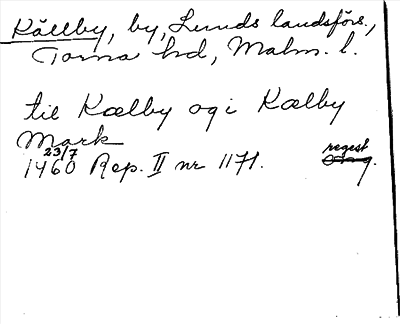 Källby, by, Lunds landsförs.,
Torna hd, Malm. l.
til Kælby og i Kælby
Mark
23/7
1460 Rep. II nr 1171.
regest